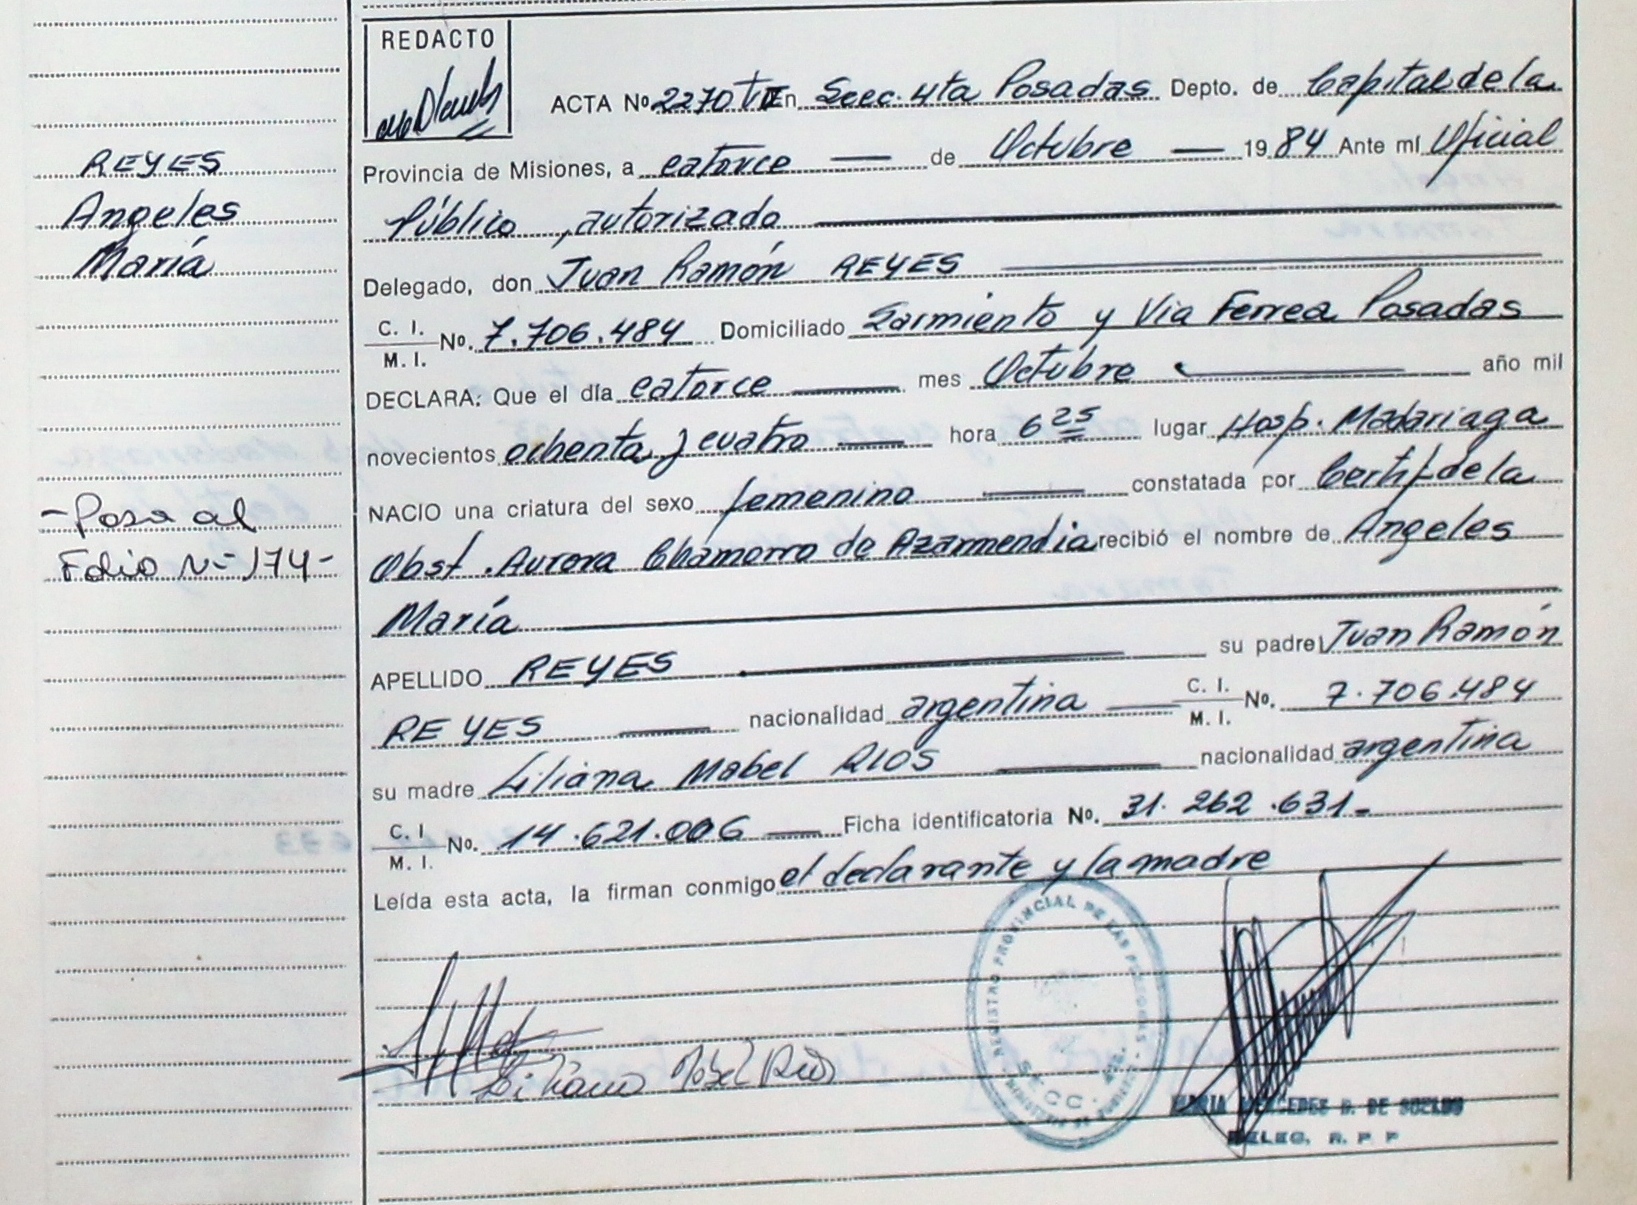 REYES
Angeles
María
-Pasa al
Folio Nº 174-
REDACTO
ACTA No 2270 TVII En Secc. 4ta Posadas Depto. de Capital de la
Provincia de Misiones, a catorce — de Octubre — 1984 Ante mI Oficial
Público, autorizado
Delegado, don Juan Ramón REYES
C. I.
M. I. No. 7.706.484 Domiciliado Sarmiento y Via Ferrea Posadas
DECLARA: Que el día catorce — mes Octubre — año mil
novecientos ochenta y cuatro — hora 6 25 lugar Hosp. Madariaga
NACIO una criatura del sexo femenino — constatada por Certif de la
Obst. Aurora Chamorro de Azarmendia recibió el nombre de Angeles
María
APELLIDO REYES — su padre Juan Ramón
REYES — nacionalidad argentina — C. I. M. I. No. 7.706.484
su madre Liliana Mabel RIOS — nacionalidad argentina
C. I. M. I. No. 14.621.006 — Ficha identificatoria No. 31.262.631-
Leída esta acta, la firman conmigo el declarante y la madre
Liliana Mabel Rios
REGISTRO PROVINCIAL DE LAS PERSONAS
SECC. 4ta.
MARIA MERCEDES DE
DELEG. R. P. P